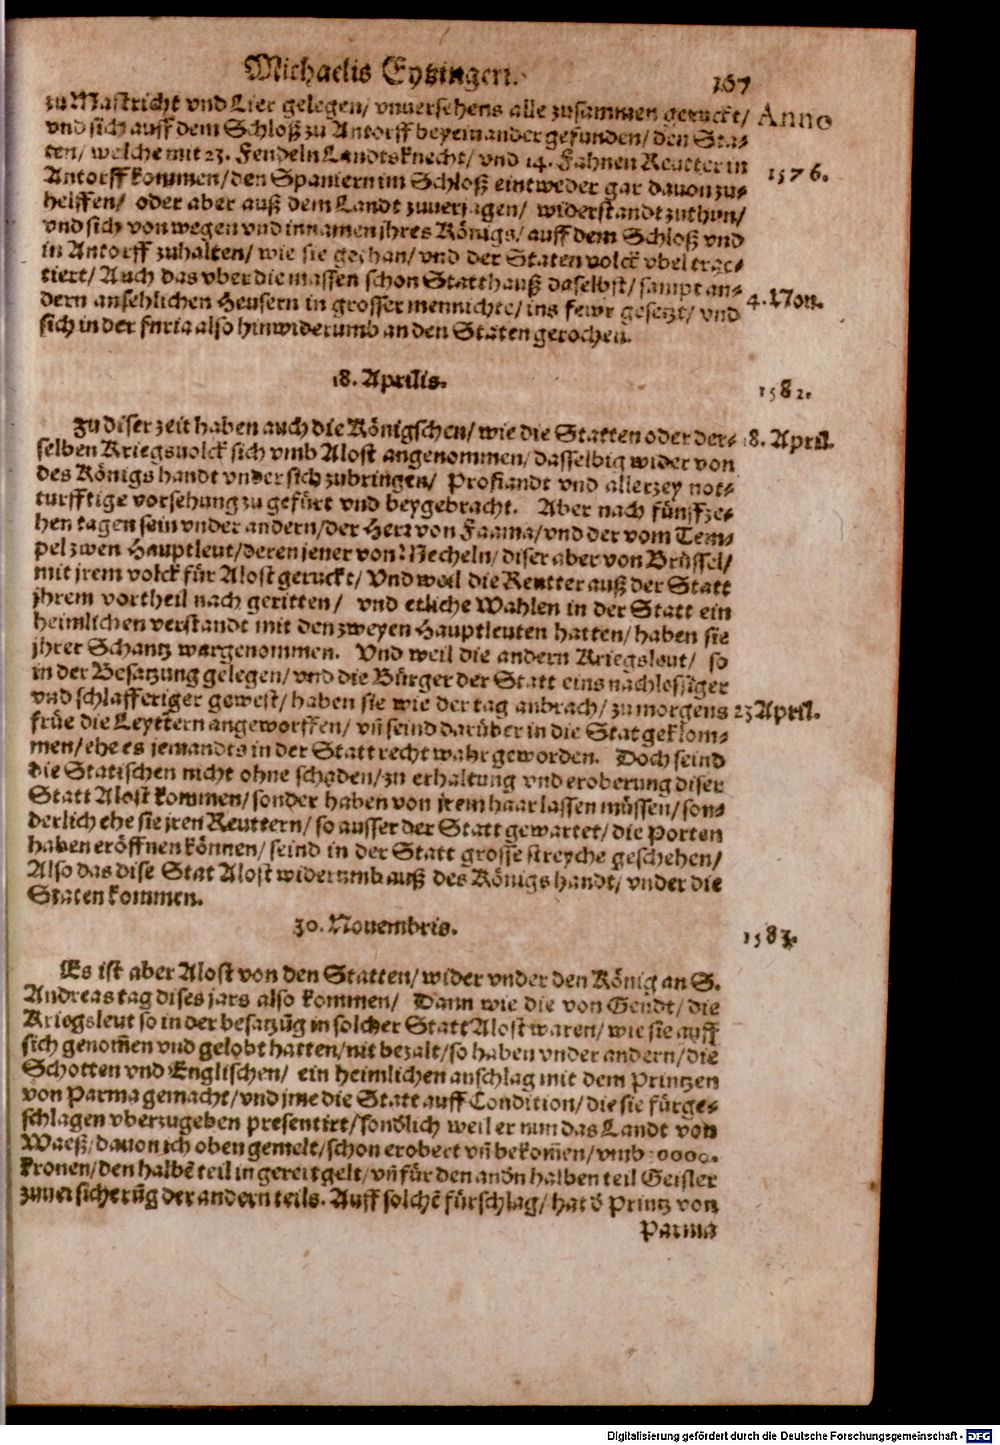 Michaelis Eytzingeri.
167
zu Mastricht vnd Lier gelegen/ vnuersehens alle zusammen geruckt/
Anno
vnd sich auff dem Schloß zu Antorff beyeinander gefunden/ den Sta-
ten/ welche mit 23. Fendeln Landtsknecht/ vnd 14. Fahnen Reutter in
1576.
Antorff kommen/ den Spaniern im Schloß eintweder gar dauon zu-
helffen/ oder aber auß dem Landt zuuerjagen/ widerstandt zuthun/
vnd sich von wegen vnd in namen jhres Königs/ auff dem Schloß vnd
in Antorff zuhalten/ wie sie gethan/ vnd der Staten volck vbel trac-
tiert/ Auch das vber die massen schon Statthauß daselbst/ sampt an-
4. Nou.
dern ansehlichen Heusern in grosser mennichte/ ins fewr gesetzt/ vnd
sich in der furia also hinwiderumb an den Staten gerochen.
18. Aprilis.
1582.
Zu diser zeit haben auch die Königschen/ wie die Statten oder der-
18. April.
selben Kriegsuolck sich vmb Alost angenommen/ dasselbig wider von
des Königs handt vnder sich zubringen/ Profiandt vnd allerzey not-
turfftige vorsehung zu gefürt vnd beygebracht. Aber nach fünffze-
hen tagen sein vnder andern/ der Herr von Faama/ vnd der vom Tem-
pel zwen Hauptleut/ deren jener von Mecheln/ diser aber von Brüssel/
mit jrem volck für Alost geruckt/ Vnd weil die Reutter auß der Statt
jhrem vortheil nach geritten/ vnd etliche Wahlen in der Statt ein
heimlichen verstandt mit den zweyen Hauptleuten hatten/ haben sie
jhrer Schantz wargenommen. Vnd weil die andern Kriegsleut/ so
in der Besatzung gelegen/ vnd die Bürger der Statt eins nachlessiger
vnd schlafferiger gewest/ haben sie wie der tag anbrach/ zu morgens
23 April.
früe die Leyttern angeworffen/ vñ seind darüber in die Stat geklom-
men/ ehe es jemandts in der Statt recht wahr geworden. Doch seind
die Statischen nicht ohne schaden/ zu erhaltung vnd eroberung diser
Statt Alost kommen/ sonder haben von jrem haar lassen müssen/ son-
derlich ehe sie jren Reuttern/ so ausser der Statt gewartet/ die Porten
haben eröffnen können/ seind in der Statt grosse streyche geschehen/
Also das dise Stat Alost widerumb auß des Königs handt/ vnder die
Staten kommen.
30. Nouembris.
1583.
Es ist aber Alost von den Statten/ wider vnder den König an S.
Andreas tag dises jars also kommen/ Dann wie die von Gendt/ die
Kriegsleut so in der besatzũg in solcher Statt Alost waren/ wie sie auff
sich genom̃en vnd gelobt hatten/ nit bezalt/ so haben vnder andern/ die
Schotten vnd Englischen/ ein heimlichen anschlag mit dem Printzen
von Parma gemacht/ vnd jme die Statt auff Condition/ die sie fürge-
schlagen vberzugeben presentirt/ sondlich weil er nun das Landt von
Waeß/ dauon ich oben gemelt/ schon erobert vñ bekom̃en/ vmb
kronen/ den halbẽ teil in gereit gelt/ vñ für den andn halben teil Geisler
zuuersicherũg der andern teils. Auff solchẽ fürschlag/ hat d Printz von
Parma
Digitalisierung gefördert durch die Deutsche Forschungsgemeinschaft - DFG